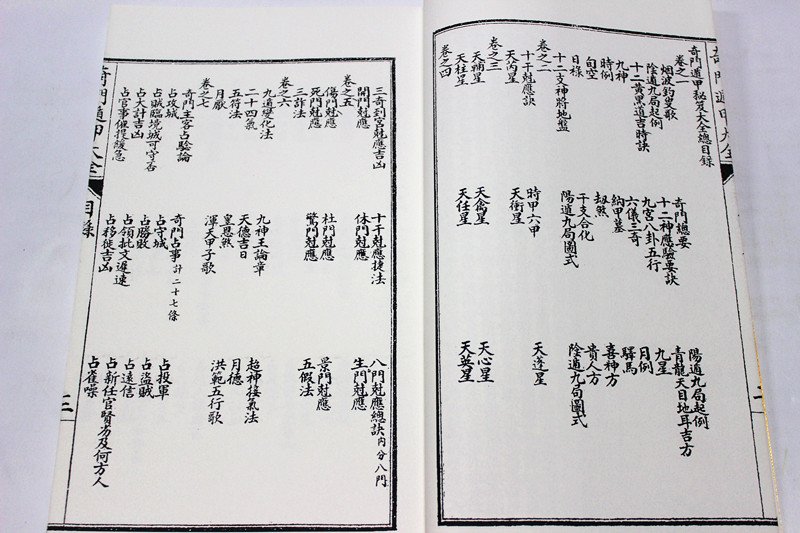 奇門遁甲大全
二
奇門遁甲秘笈大全總目錄
卷之一
烟波釣叟歌 奇門總要 陽遁九局起例
陰遁九局起例 十二神應驗要訣 青龍天目地耳吉方
十二黃黑道吉時訣 九宮八卦五行 九星
九神 六儀三奇 月例
時例 納甲墓 驛馬
旬空 劫煞 喜神方
日祿 干支合化 貴人方
十二支神將地盤 陽遁九局圖式 陰遁九局圖式
卷之二
十干尅應訣 時甲六甲 天蓬星
天芮星 天衝星
卷之三
天輔星 天禽星 天心星
天柱星 天任星 天英星
卷之四
三奇到宮尅應吉凶 十干尅應捷法 八門尅應總訣內分八門
開門尅應 休門尅應 生門尅應
卷之五
傷門尅應 杜門尅應 景門尅應
死門尅應 驚門尅應 五假法
三詐法
卷之六
九遁變化法 九神王論章 超神接氣法
二十四氣 天德吉日 月德
五符法 皇恩煞 洪範五行歌
月厭 渾天甲子歌
卷之七
奇門主客占驗論 奇門占事計二十七條
占攻城 占守城 占投軍
占賊臨境城可守否 占勝敗 占盜賊
占大計吉凶 占領批文遲速 占遠信
占官事催提緩急 占移徙吉凶 占新任官賢否及何方人
占雀噪
奇門遁甲大全
目錄
三